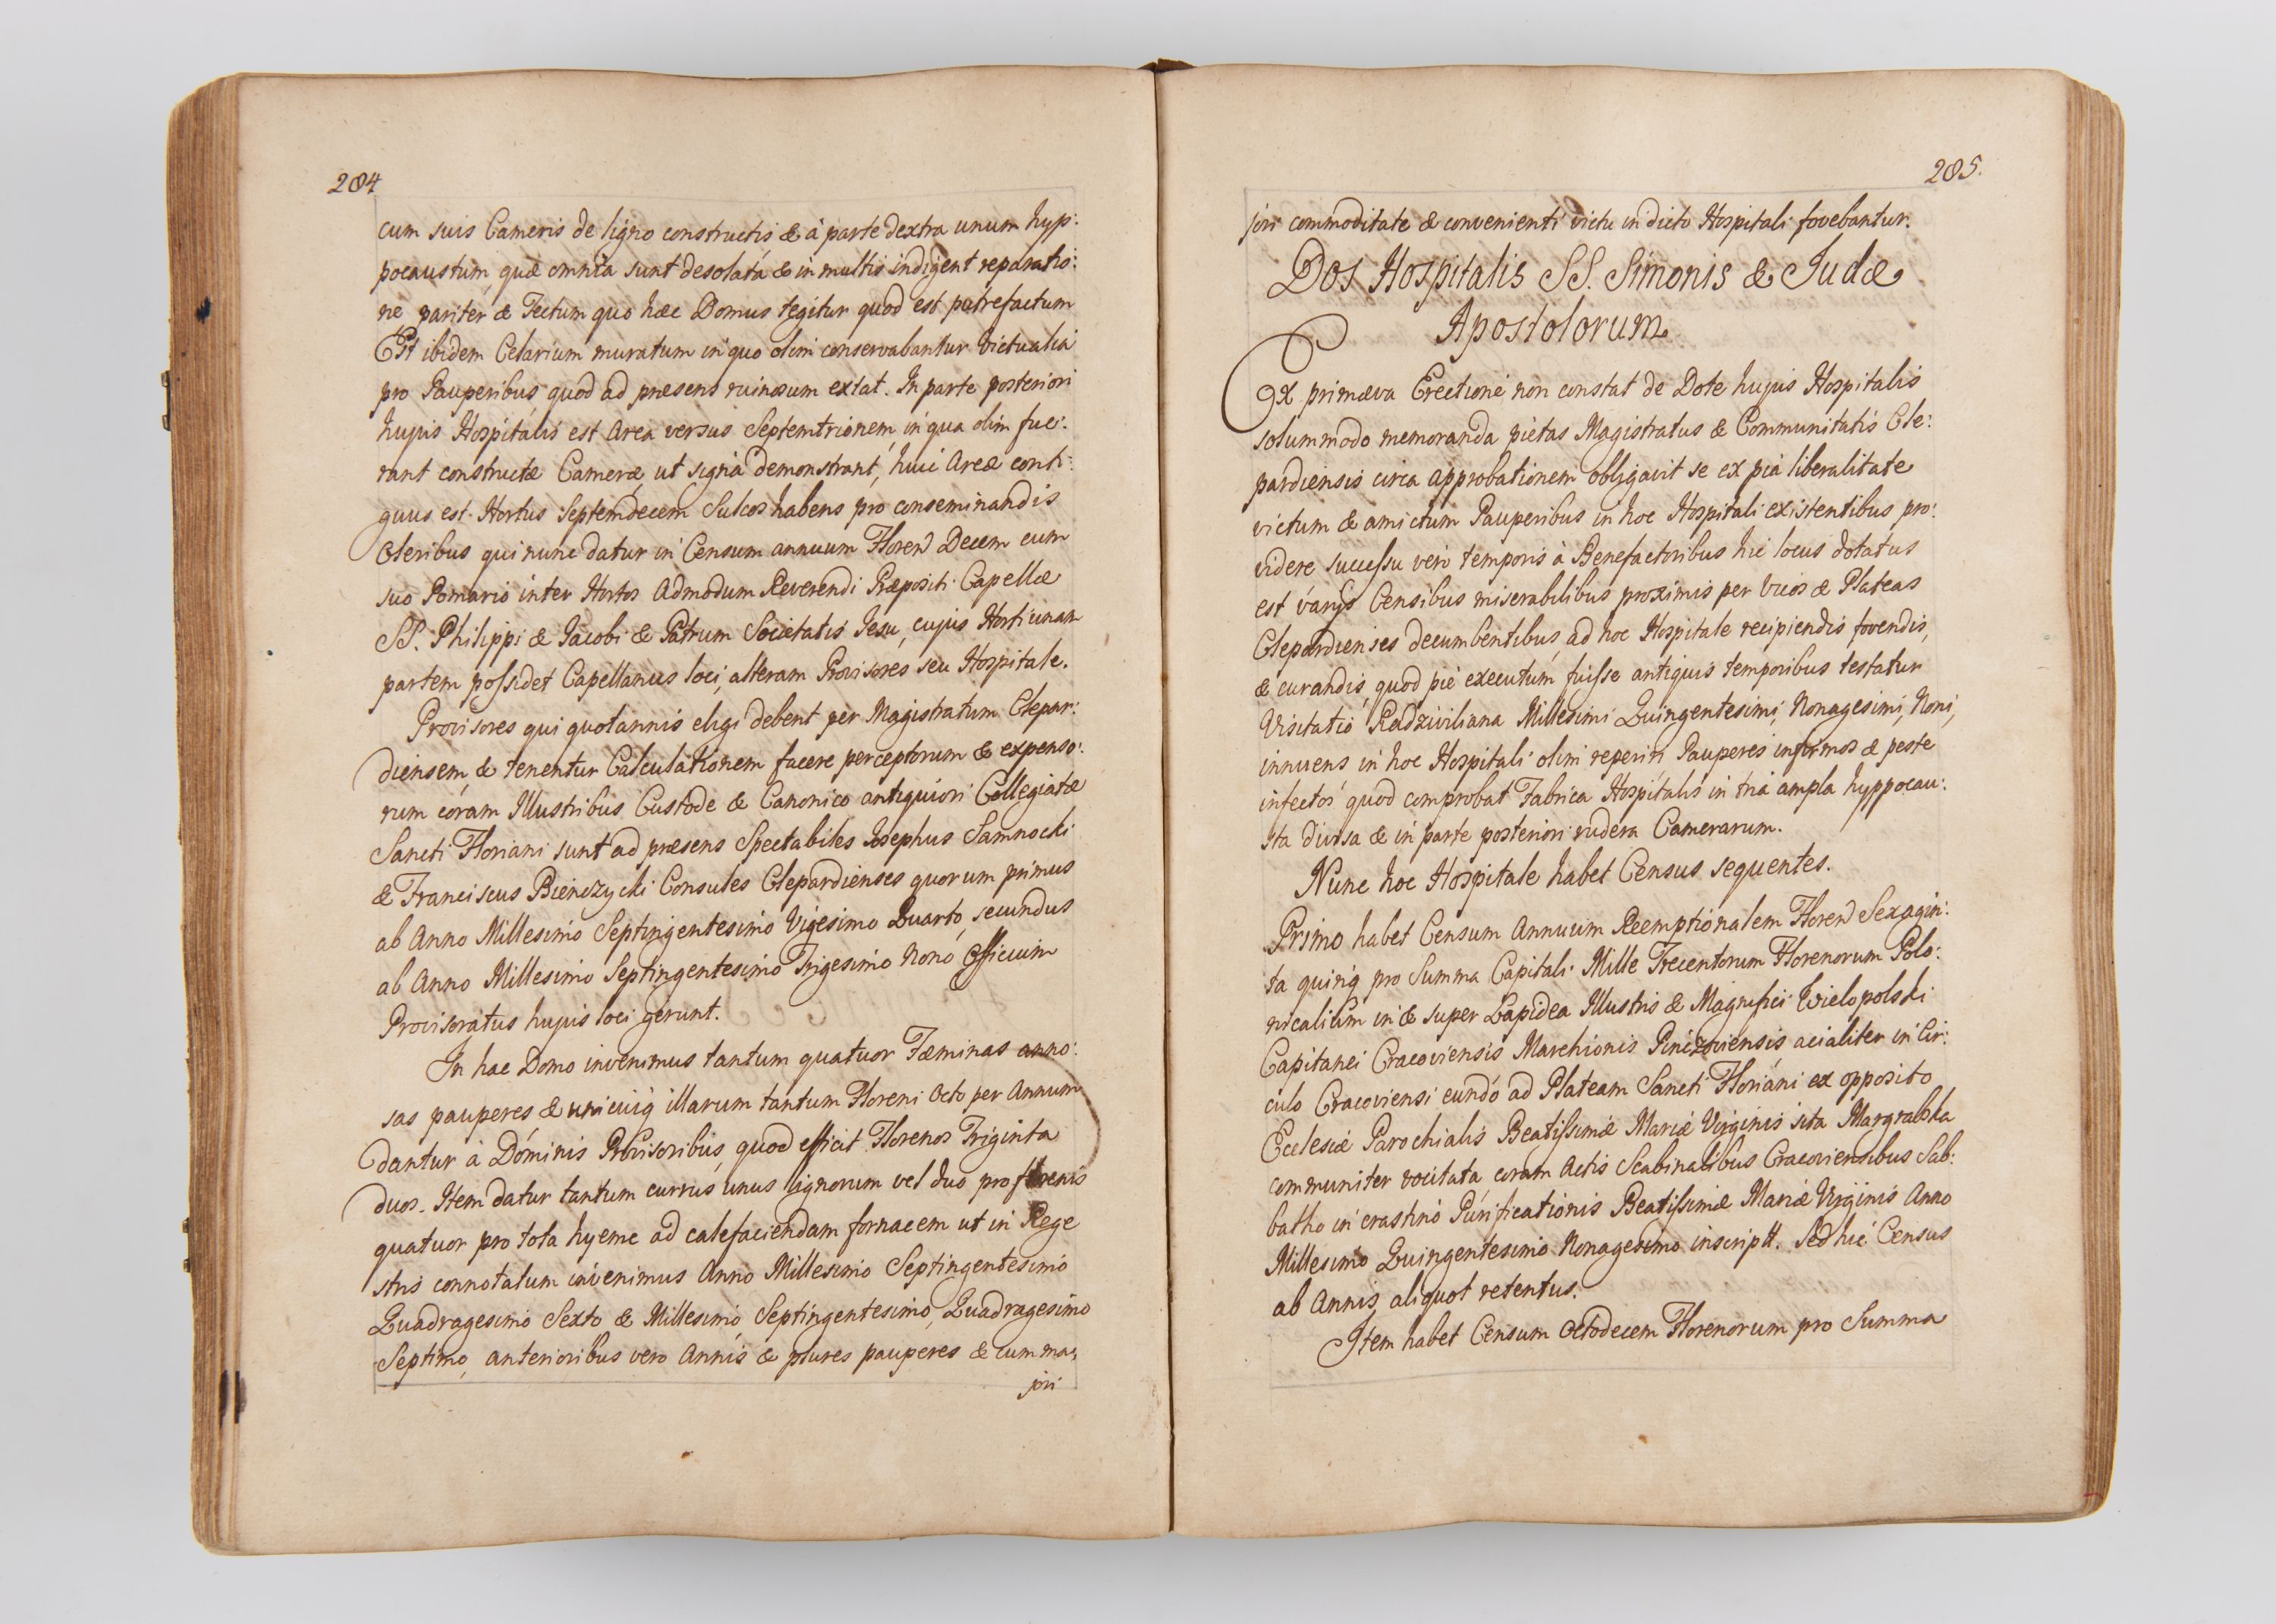 284
cum suis Cameris de ligno constructis & à parte dextra unum hyp:
pocaustum, quæ omnia sunt desolata & in multis indigent reparatio:
ne pariter & Tectum quo hæc Domus tegitur quod est putrefactum
Est ibidem Celarium muratum in quo olim conservabantur Victualia
pro Pauperibus, quod ad præsens ruinosum extat. In parte posteriori
hujus Hospitalis est Area versus Septemtrionem, in qua olim fue:
rant constructæ Cameræ, ut signa demonstrant, huic Areæ conti:
guus est Hortus Septemdecem Sulcos habens pro conseminandis
Oleribus qui nunc datur in Censum annuum Floren Decem cum
suo Pomario inter Hortos Admodum Reverendi Præpositi Capellæ
SS. Philippi & Jacobi & Patrum Societatis Jesu, cujus Horti unam
partem possidet Capellanus loci, alteram Provisores seu Hospitale.
Provisores qui quotannis eligi debent per Magistratum Clepar:
diensem, & tenentur Calculationem facere perceptorum & expenso:
rum coram Illustribus Custode & Canonico antiquiori Collegiatæ
Sancti Floriani sunt ad præsens Spectabiles Josephus Samnocki
& Franciscus Bienczycki Consules Clepardienses quorum primus
ab Anno Millesimo Septingentesimo Vigesimo Quarto, secundus
ab Anno Millesimo Septingentesimo Trigesimo Nono Officium
Provisoratus hujus loci gerunt.
In hac Domo invenimus tantum quatuor Fæminas anno:
sas pauperes & unicuiq illarum tantum Floreni Octo per Annum
dantur à Dominis Provisoribus, quod efficit Florenos Triginta
duos. Item datur tantum currus unus lignorum vel duo pro florenis
quatuor pro tota hyeme ad calefaciendam fornacem ut in Rege
stris connotatum invenimus Anno Millesimo Septingentesimo
Quadragesimo Sexto & Millesimo Septingentesimo Quadragesimo
Septimo, anterioribus vero Annis & plures pauperes & cum ma,
jori
285.
jori commoditate & convenienti victu in dicto Hospitali fovebantur.
Dos Hospitalis SS. Simonis & Judæ
Apostolorum
Ex primæva Erectione non constat de Dote hujus Hospitalis
solummodo memoranda pietas Magistratus & Communitatis Cle:
pardiensis circa approbationem obligavit se ex pia liberalitate
victum & amictum Pauperibus in hoc Hospitali existentibus pro:
videre successu vero temporis à Benefactoribus hic locus dotatus
est varijs Censibus miserabilibus proximis per Vicos & Plateas
Clepardienses decumbentibus, ad hoc Hospitale recipiendis, fovendis,
& curandis, quod pie executum fuisse antiquis temporibus testatur
Visitatio Radziviliana Millesimi Quingentesimi, Nonagesimi, Noni,
innuens in hoc Hospitali olim reperiri Pauperes infirmos & peste
infectos quod comprobat Fabrica Hospitalis in tria ampla hyppocau:
sta divisa & in parte posteriori rudera Camerarum.
Nunc hoc Hospitale habet Census sequentes.
Primo habet Censum Annuum Reemptionalem Floren Sexagin:
ta quinq pro Summa Capitali Mille Trecentorum Florenorum Polo:
nicalium in & super Lapidea Illustris & Magnifici Wielopolski
Capitanei Cracoviensis Marchionis Pinczoviensis acialiter in Cir:
culo Cracoviensi eundo ad Plateam Sancti Floriani ex opposito
Ecclesiæ Parochialis Beatissimæ Mariæ Virginis sita Margrabska
communiter vocitata coram Actis Scabinalibus Cracoviensibus Sab:
batho in crastino Purificationis Beatissimæ Mariæ Virginis Anno
Millesimo Quingentesimo Nonagesimo inscriptt. Sed hic Census
ab Annis aliquot retentus.
Item habet Censum Octodecem Florenorum pro Summa